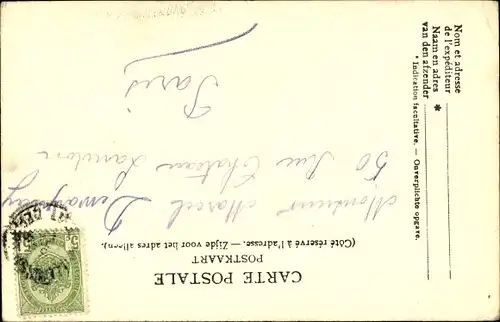 CARTE POSTALE
POSTKAART
(Côté réservé à l'adresse. — Zijde voor het adres alleen.)
Monsieur Marcel
50 Rue Château Landon
Paris
Nom et adresse
de l'expéditeur
Naam en adres
van den afzender
*
* Indication facultative. — Onverplichte opgave.
5
5